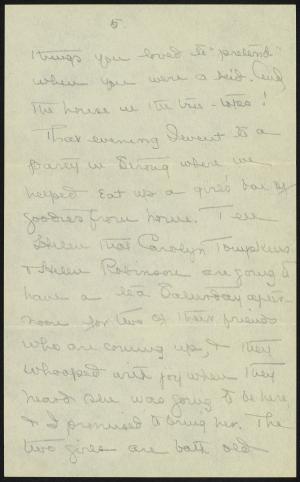 5.
things you loved to "pretend"
when you were a kid. And
the house in the tree - too!
That evening I went to a
party in Strong where we
helped eat up a girl's box of
goodies from home. Tell
Helen that Carolyn Tompkins
& Helen Robinson are going to
have a tea Saturday after-
noon for two of their friends
who are coming up, & they
whooped with joy when they
heard she was going to be here
& I promised to bring her. The
two girls are both old